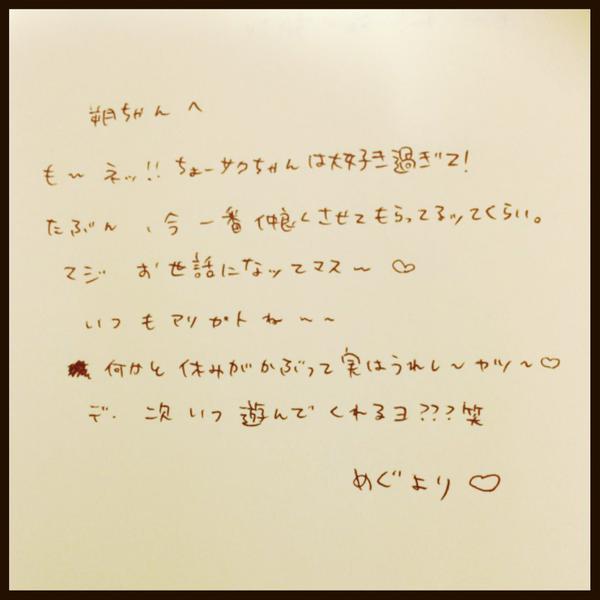 朔ちゃんへ
も〜ネッ!!ちょーサクちゃんは大好き過ぎて!
たぶん、今一番仲良くさせてもらってるッてくらい。
マジお世話になッてマス〜♡
いつもアリガトね〜〜
何かと休みがかぶって実はうれし〜ヤツ〜♡
で.次いつ遊んでくれるヨ???笑
めぐより♡